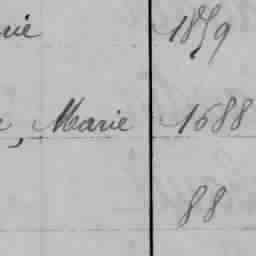 rie 1859
e, Marie 1688
88